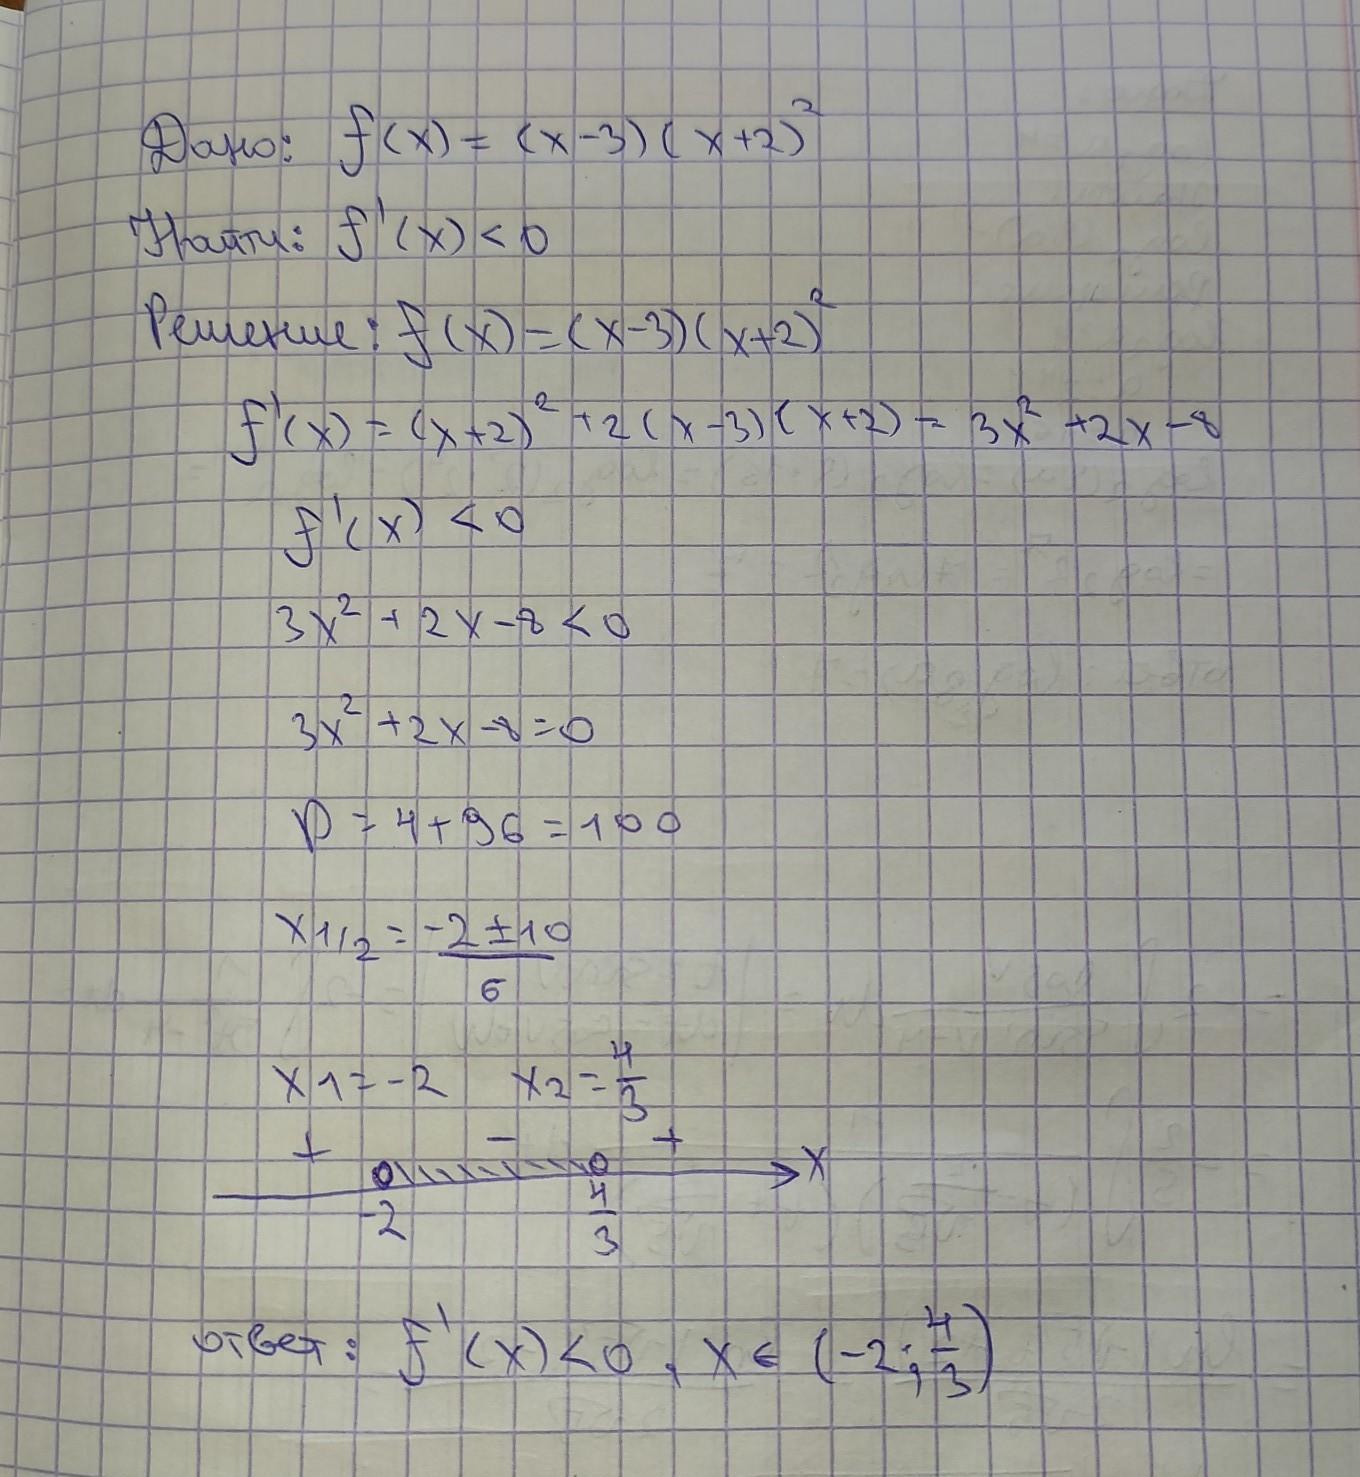 Дано: f(x) = (x-3)(x+2)²
Найти: f'(x) < 0
Решение: f(x) = (x-3)(x+2)²
f'(x) = (x+2)² + 2(x-3)(x+2) = 3x² + 2x - 8
f'(x) < 0
3x² + 2x - 8 < 0
3x² + 2x - 8 = 0
D = 4 + 96 = 100
x1/2 = (-2 ± 10)/6
x1 = -2 x2 = 4/3
+ - +
x
-2 4/3
ответ: f'(x) < 0, x ∈ (-2; 4/3)